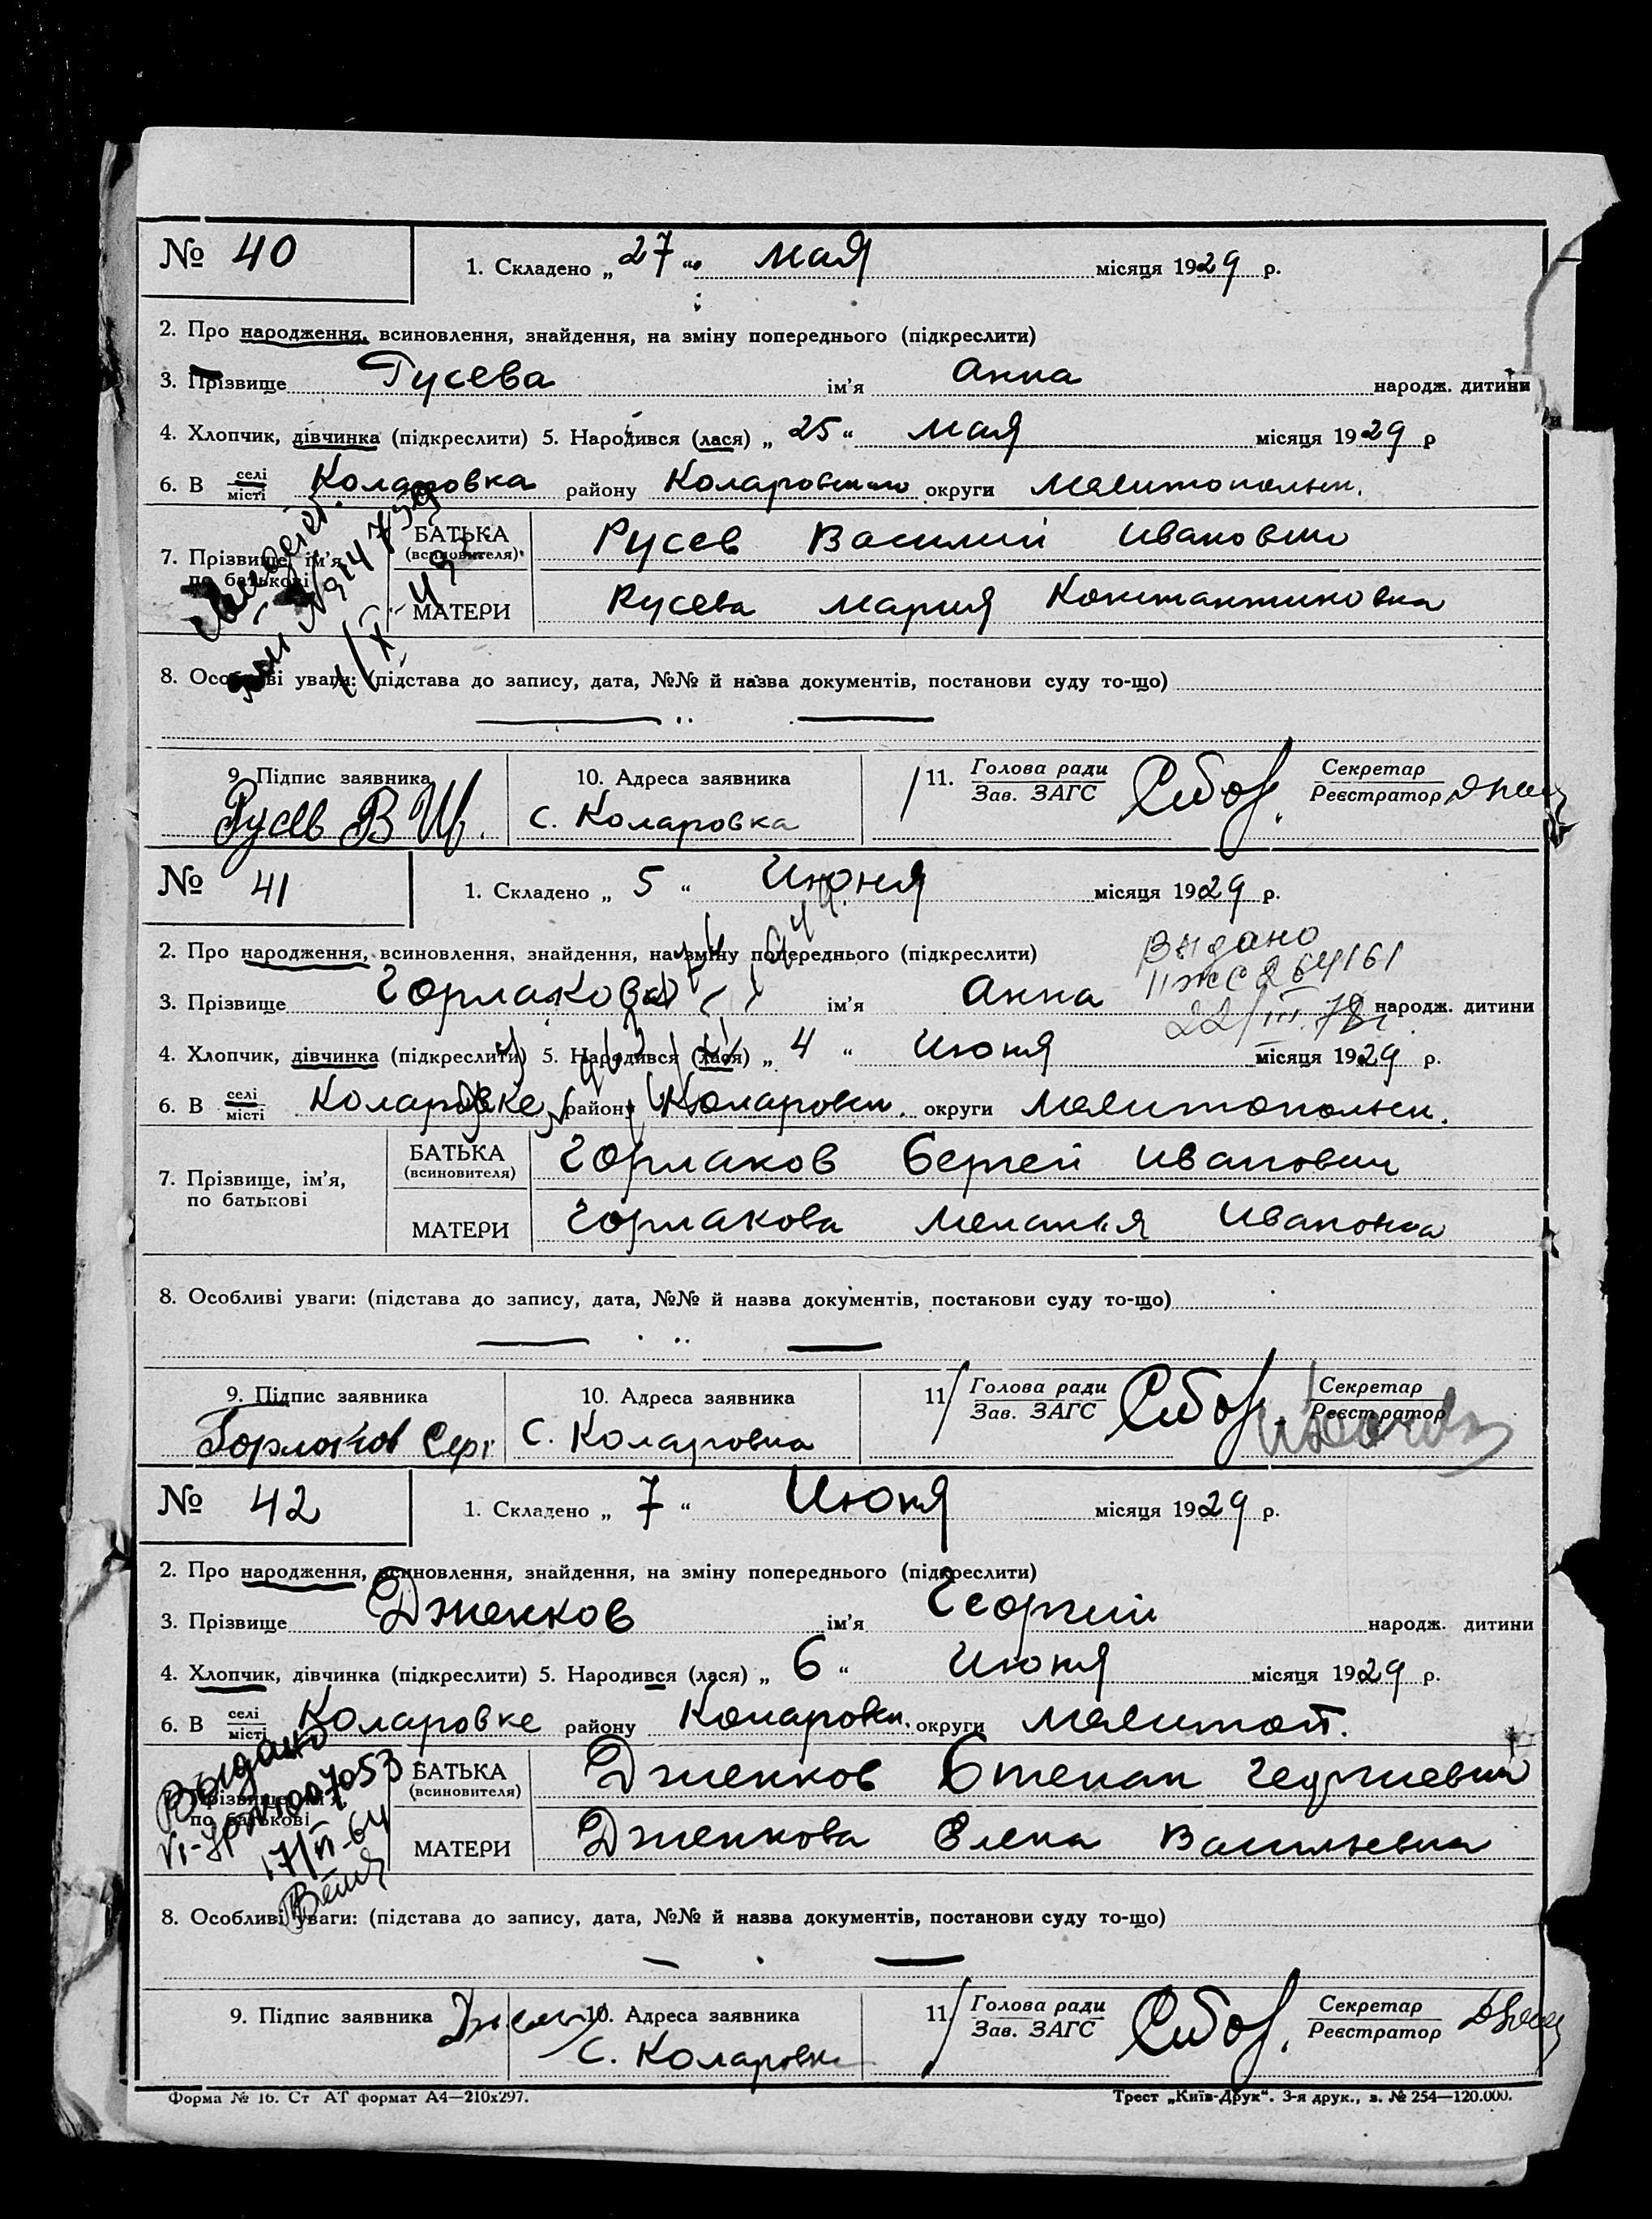 № 40
1. Складено „ 27 “ мая місяця 1929 р.
2. Про народження, всиновлення, знайдення, на зміну попереднього (підкреслити)
3. Прізвище Русева ім’я Анна народж. дитини
4. Хлопчик, дівчинка (підкреслити) 5. Народився (лася) „ 25 “ мая місяця 1929 р
6. В селі місті Коларовка району округи Мелитопольск.
7. Прізвище, ім’я
по батькові
БАТЬКА
(всиновителя)
Русев Василий Иванович
МАТЕРИ
Русева Мария Константиновна
8. Особливі уваги: (підстава до запису, дата, №№ й назва документів, постанови суду то-що)
9. Підпис заявника
Русев В И.
10. Адреса заявника
с. Коларовка
11. Голова ради
Зав. ЗАГС
Секретар
Реєстратор
№ 41
1. Складено „ 5 “ Июня місяця 1929 р.
2. Про народження, всиновлення, знайдення, на зміну попереднього (підкреслити)
Видано
22/III.78
3. Прізвище Горлакова ім’я Анна народж. дитини
4. Хлопчик, дівчинка (підкреслити) 5. Народився (лася) „ 4 “ Июня місяця 1929 р.
6. В селі місті Коларовке району Коларовск. округи Мелитопольск.
7. Прізвище, ім’я,
по батькові
БАТЬКА
(всиновителя)
Горлаков Сергей Иванович
МАТЕРИ
Горлакова Меланья Ивановна
8. Особливі уваги: (підстава до запису, дата, №№ й назва документів, постанови суду то-що)
9. Підпис заявника
Горлаков Серг
10. Адреса заявника
С. Коларовка
11 Голова ради
Зав. ЗАГС
Секретар
Реєстратор
№ 42
1. Складено „ 7 “ Июня місяця 1929 р.
2. Про народження, всиновлення, знайдення, на зміну попереднього (підкреслити)
3. Прізвище Дженков ім’я Георгий народж. дитини
4. Хлопчик, дівчинка (підкреслити) 5. Народився (лася) „ 6 “ Июня місяця 1929 р.
6. В селі місті Коларовке району Коларовск. округи Мелитоп.
Выдано
17/VI-64
по батькові
БАТЬКА
(всиновителя)
Дженков Степан Георгиевич
МАТЕРИ
Дженкова Елена Васильевна
8. Особливі уваги: (підстава до запису, дата, №№ й назва документів, постанови суду то-що)
9. Підпис заявника
10. Адреса заявника
С. Коларовка
11 Голова ради
Зав. ЗАГС
Секретар
Реєстратор
Форма № 16. Ст АТ формат А4—210х297.
Трест „Київ-Друк“. 3-я друк., з. № 254—120.000.